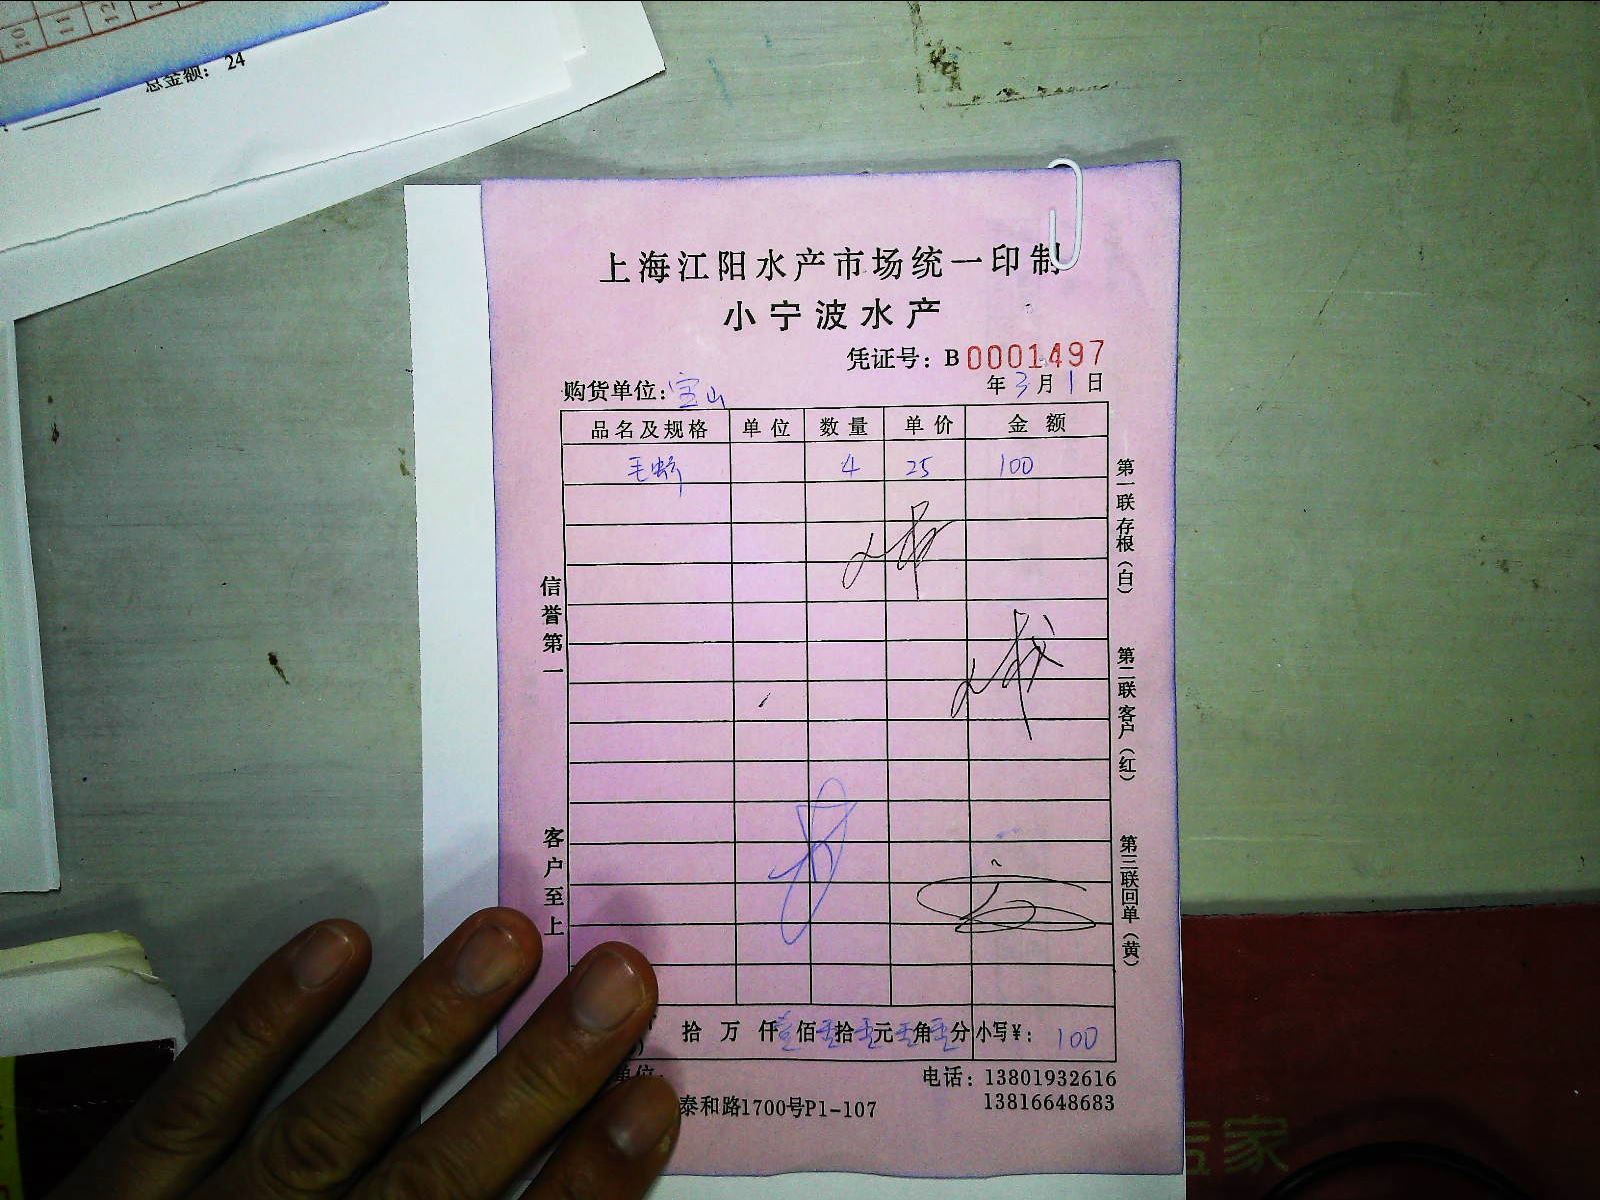 10 11 12
总金额: 24
上海江阳水产市场统一印制
小宁波水产
凭证号: B 0001497
购货单位: 宝山
年 3 月 1 日
品名及规格 单位 数量 单价 金额
毛蚶 4 25 100
第一联存根(白)
第二联客户(红)
第三联回单(黄)
信誉第一
客户至上
拾 万 仟 壹 佰 拾 元 角 分 小写¥: 100
单位:
电话: 13801932616
13816648683
泰和路1700号P1-107
家